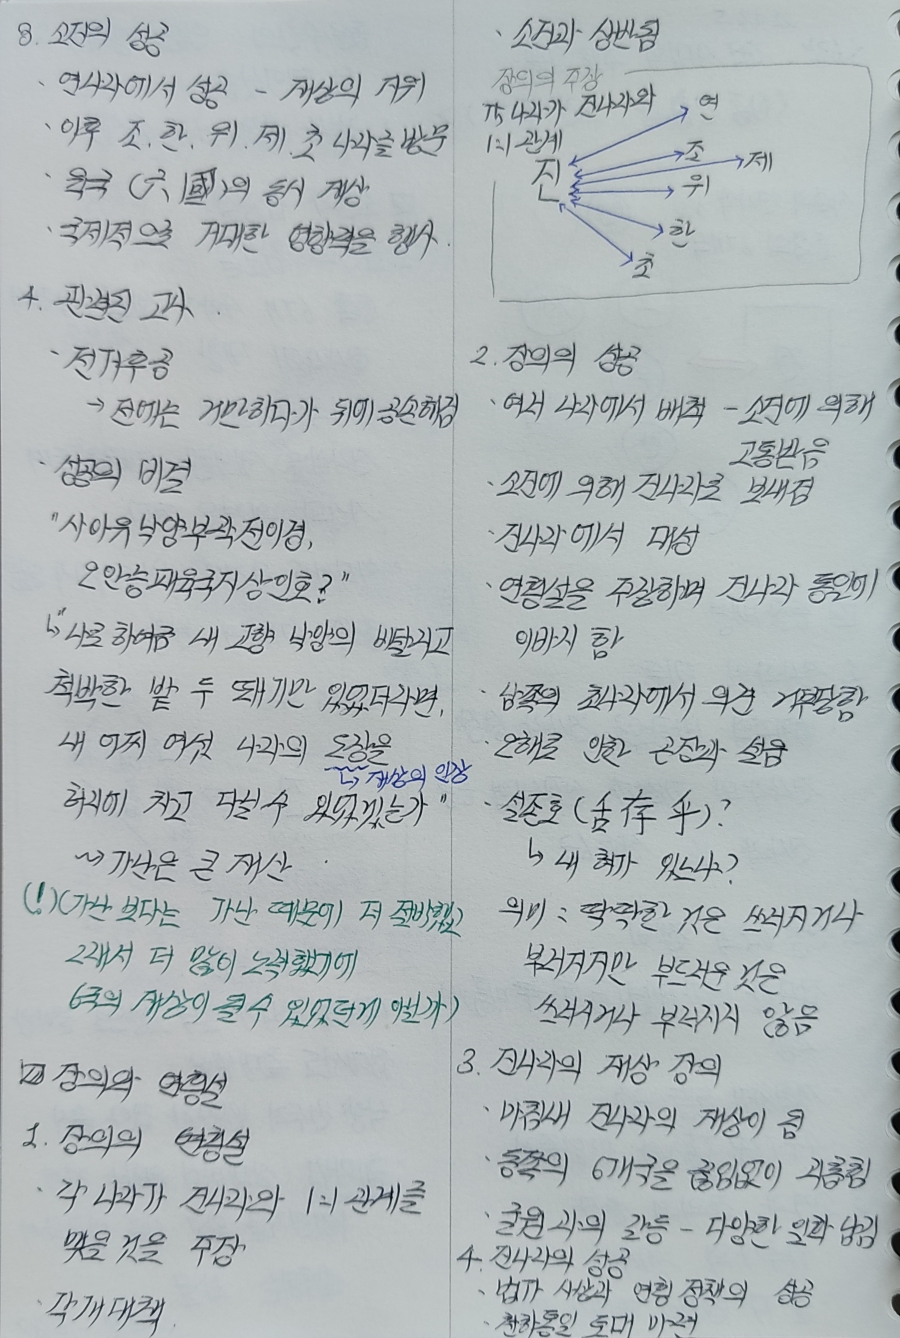 3. 소진의 성공
· 연나라에서 성공 - 재상의 지위
· 이후 조, 한, 위, 제, 초 나라를 방문
· 육국 (六國)의 동시 재상
· 국제적으로 거대한 영향력을 행사.
4. 관련된 고사.
· 전거후공
→ 전에는 거만하다가 뒤에 공손해짐
· 성공의 비결
"사아유낙양부곽전이경,
오안능패육국지상인호?"
↳ "나로 하여금 내 고향 낙양의 비탈지고
척박한 밭 두 뙈기만 있었더라면,
내 어찌 여섯 나라의 도장을
↳ 재상의 인장
허리에 차고 다닐 수 있었겠는가"
~> 가난은 큰 재산
(!)(가난 보다는 가난 때문에 더 절박했고
그래서 더 많이 노력했기에
6국의 재상이 될 수 있었던게 아닌가)
Ⅲ 장의와 연횡설
1. 장의의 연횡설
· 각 나라가 진나라와 1:1 관계를
맺을 것을 주장
· 각개대책
· 소진과 상반됨
장의의 주장
各 나라가 진나라와
1:1 관계
진
연
조
제
위
한
초
2. 장의의 성공
· 여러 나라에서 배척 - 소진에 의해
고통받음
· 소진에 의해 진나라로 보내짐
· 진나라에서 대성
· 연횡설을 주장하며 진나라 통일에
이바지 함
· 남쪽의 초나라에서 의견 거부당함
· 오해로 인한 곤장과 설움
· 설존호 (舌存乎)?
↳ 내 혀가 있느냐?
의미 : 딱딱한 것은 쓰러지거나
부러지지만 부드러운 것은
쓰러지거나 부러지지 않음
3. 진나라의 재상 장의
· 마침내 진나라의 재상이 됨
· 동쪽의 6개국을 끊임없이 괴롭힘
· 굴원과의 갈등 - 다양한 일화 남김
4. 진나라의 성공
· 법가 사상과 연횡 정책의 성공
· 천하통일 토대 마련